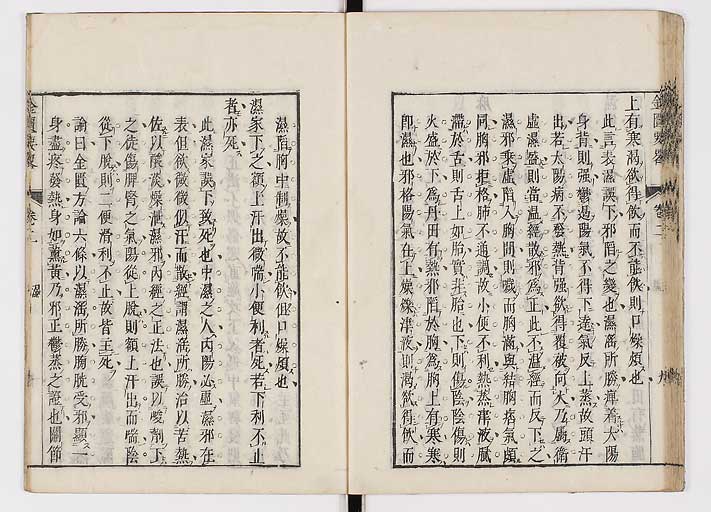 上有寒渴欲得飲而不能飲則口燥煩也
此言表濕誤下邪陷之變也濕家所勝痺着太陽
身背則强鬱遏陽氣不得下達氣反上蒸故頭汗
出若太陽病不發熱背强欲得覆被向火乃屬衛
虛濕盛則當溫經散邪爲正此不溫經而反下之
濕邪乘虛陷入胸間則噦而胸滿與結胸病氣頗
同胸邪拒格肺不通調故小便不利熱蒸津液膩
滯於舌則舌上如胎實非胎也下則傷陰陰傷則
火盛於下爲丹田有熱邪陷於胸爲胸上有寒寒
卽濕也邪格陽氣在上燥爍津液則渴欲得飲而
濕陷胸中制燥故不能飲但口燥煩也
濕家下之額上汗出微喘小便利者死若下利不止
者亦死
此濕家誤下致死也中濕之人內陽必虛濕邪在
表但欲微微似汗而散經謂濕滛所勝治以苦熱
佐以酸淡燥泄濕邪內經之正法也誤以峻劑下
之徒傷脾腎之氣陽從上脫則額上汗出而喘陰
從下脫則二便滑利不止故皆主死
論曰金匱方論六條以濕滛所勝膀胱受邪顯一
身盡疼發熱身如薰黃乃邪正鬱蒸之證也關節
金匱要畧
卷二
濕